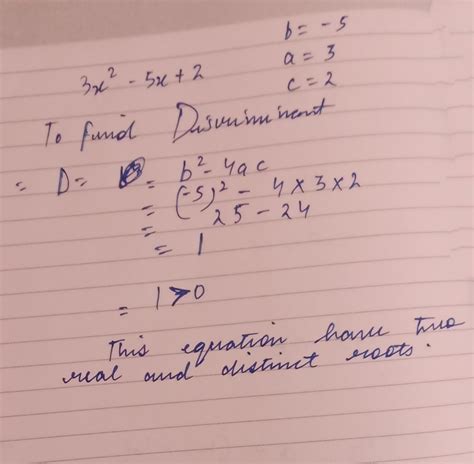 b = -5
a = 3
c = 2
3x² - 5x + 2
To find Discriminant
= D = = b² - 4ac
= (-5)² - 4 × 3 × 2
= 25 - 24
= 1
= 1 > 0
This equation have two
real and distinct roots.